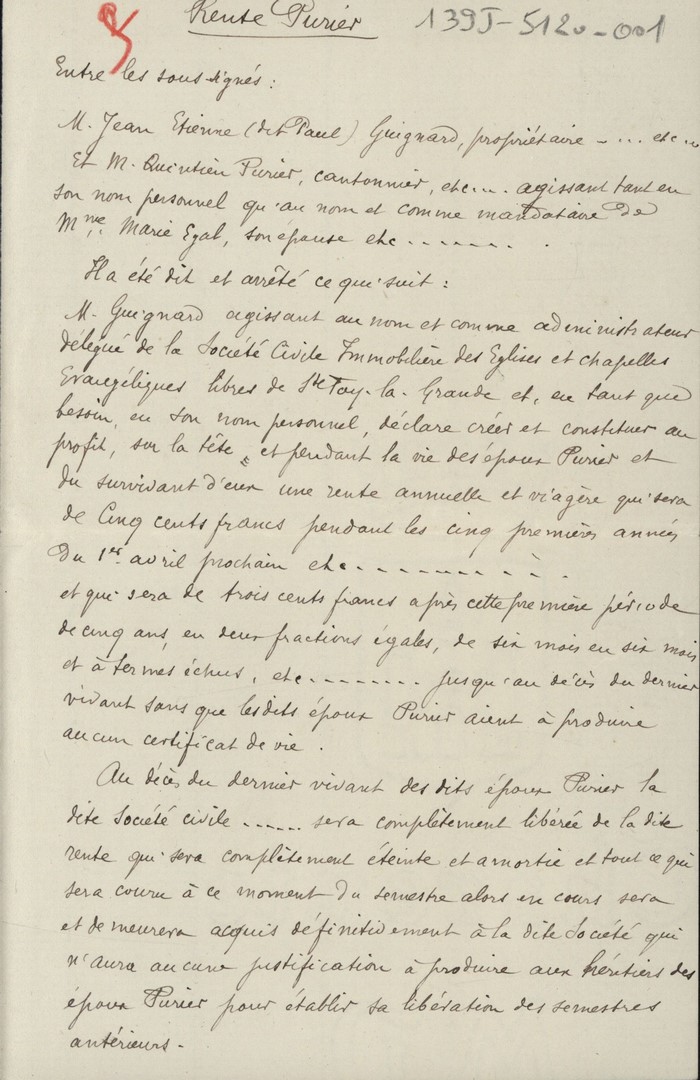 Rente Purier 139J-5120-001
Entre les sous-signés :
M. Jean Etienne (dit Paul) Guignard, propriétaire - ... etc...
Et M. Quintien Purier, cantonnier, etc... agissant tant en
son nom personnel qu'au nom et comme mandataire de
Mme Marie Egal, son épouse etc ........
Il a été dit et arrêté ce qui suit :
M. Guignard agissant au nom et comme administrateur
délégué de la Société Civile Immobilière des Eglises et chapelles
Evangéliques libres de Ste Foy-la-Grande et, en tant que
besoin, en son nom personnel, déclare créer et constituer au
profit, sur la tête et pendant la vie des époux Purier et
du survivant d'eux une rente annuelle et viagère qui sera
de Cinq cents francs pendant les cinq premières années
du 1er avril prochain etc. - - - - - - - - - -
et qui sera de trois cents francs après cette première période
de cinq ans, en deux fractions égales, de six mois en six mois
et à termes échus, etc ........ jusqu'au décès du dernier
vivant sans que lesdits époux Purier aient à produire
aucun certificat de vie.
Au décès du dernier vivant des dits époux Purier la
dite Société civile ...... sera complètement libérée de la dite
rente qui sera complètement éteinte et amortie et tout ce qui
sera couru à ce moment du semestre alors en cours sera
et demeurera acquis définitivement à la dite Société qui
n'aura aucune justification à produire aux héritiers des
époux Purier pour établir sa libération des semestres
antérieurs.-